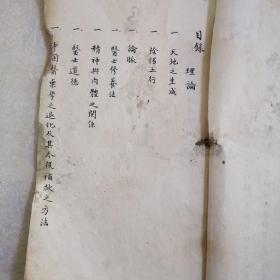 目錄
理論
一 天地之生成
一 陰陽五行
一 論脈
一 醫士修養法
一 精神與內體之關係
一 醫士道德
一 中國醫藥學之退化及其今後補救之方法